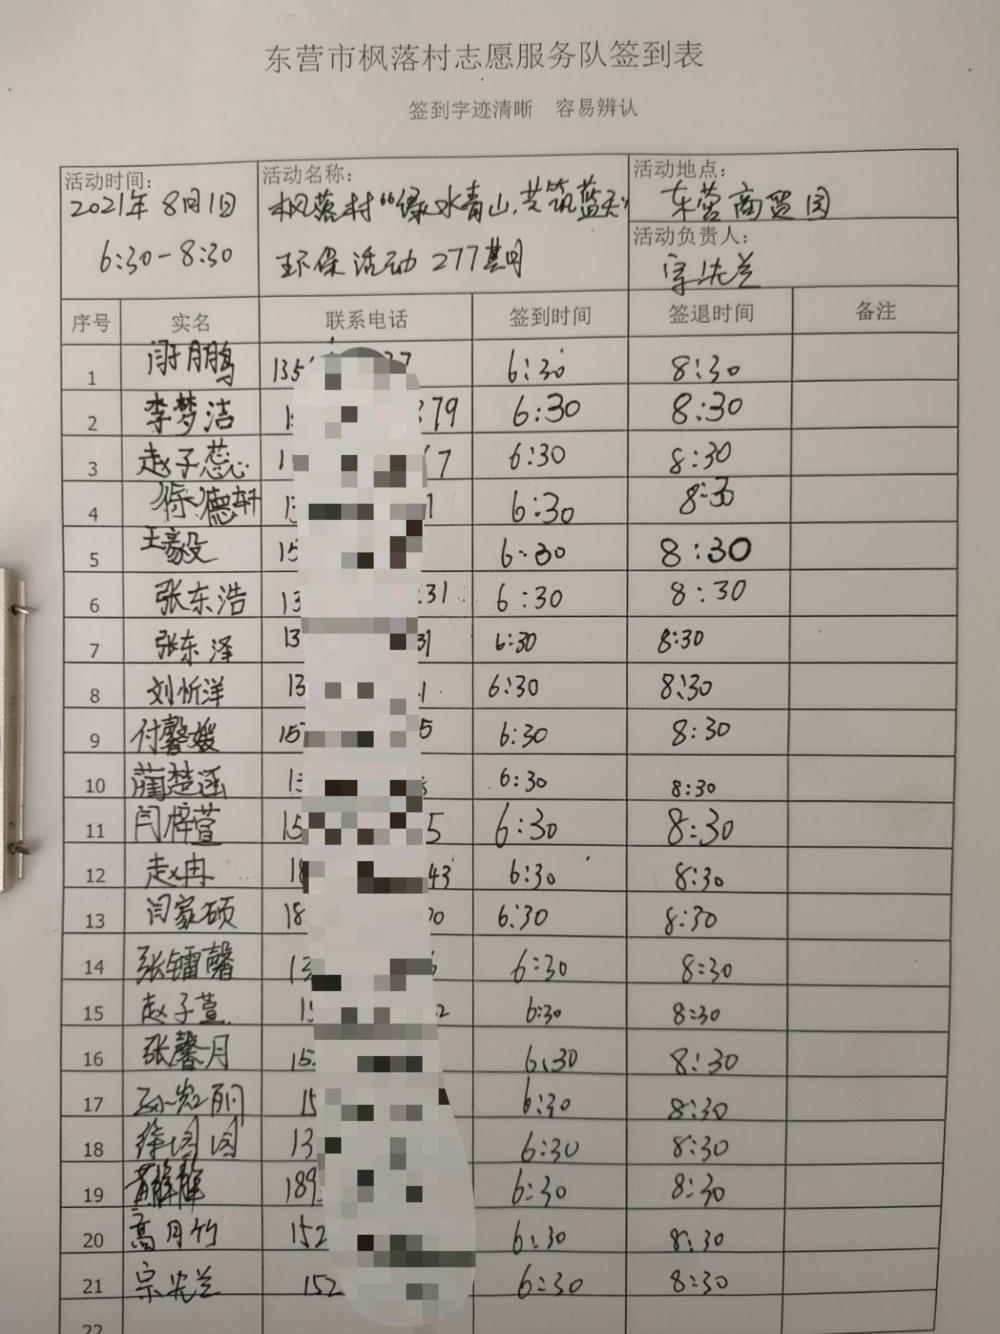 东营市枫落村志愿服务队签到表
签到字迹清晰 容易辨认
活动时间: 活动名称: 活动地点:
2021年8月1日 枫落村“绿水青山,共筑蓝天” 东营商贸园
6:30-8:30 环保活动277期 活动负责人:
宗先兰
序号 实名 联系电话 签到时间 签退时间 备注
1 闫朋鹏 135 37 6:30 8:30
2 李梦洁 79 6:30 8:30
3 赵子蕊 1 7 6:30 8:30
4 徐德轩 13 1 6:30 8:30
5 王豪毅 15 6:30 8:30
6 张东浩 13 231 6:30 8:30
7 张东泽 13 31 6:30 8:30
8 刘忻洋 13 1 6:30 8:30
9 付馨媛 157 5 6:30 8:30
10 蔺楚涵 13 6:30 8:30
11 闫梓萱 15 5 6:30 8:30
12 赵冉 18 43 6:30 8:30
13 闫家硕 18 00 6:30 8:30
14 张镭馨 13 6:30 8:30
15 赵子萱 15 2 6:30 8:30
16 张馨月 15 6:30 8:30
17 孙岩丽 15 6:30 8:30
18 徐园园 13 6:30 8:30
19 189 6:30 8:30
20 高月竹 152 6:30 8:30
21 宗先兰 152 6:30 8:30
22